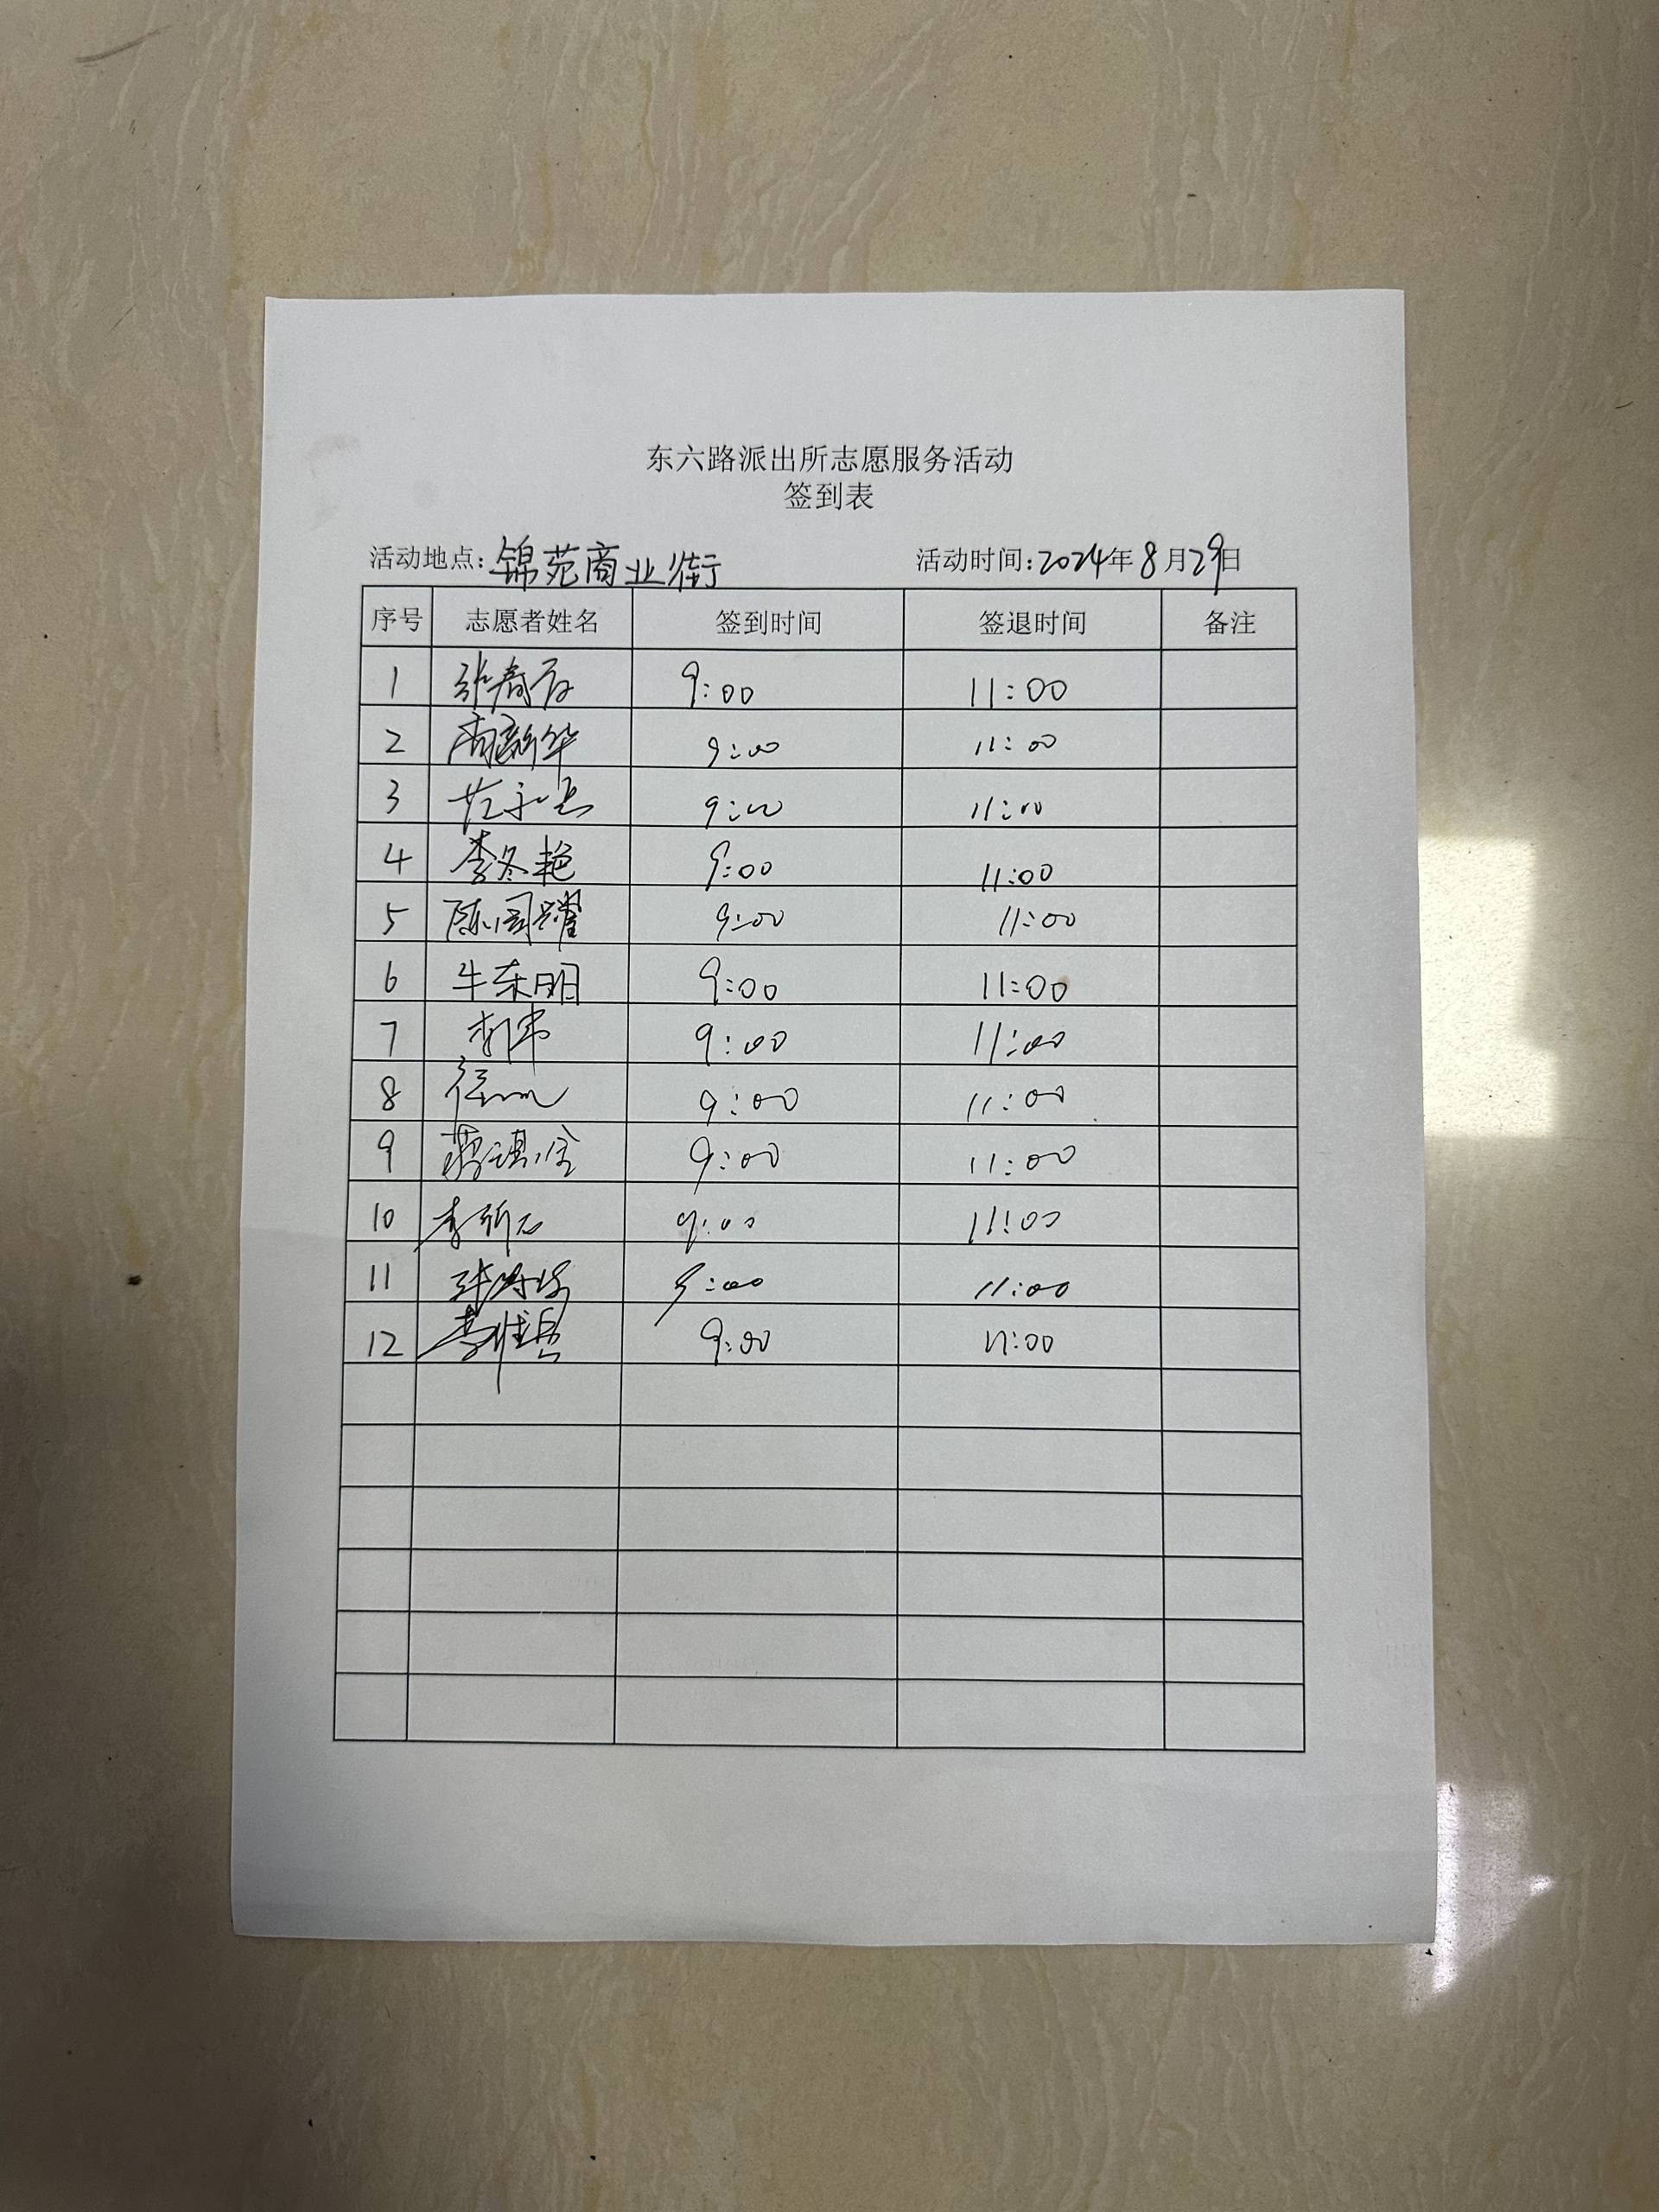 东六路派出所志愿服务活动
签到表
活动地点:锦苑商业街 活动时间:2024年8月29日
序号 志愿者姓名 签到时间 签退时间 备注
1 张春 9:00 11:00
2 高新华 9:00 11:00
3 范永 9:00 11:00
4 李冬艳 9:00 11:00
5 陈国耀 9:00 11:00
6 牛东明 9:00 11:00
7 9:00 11:00
8 9:00 11:00
9 9:00 11:00
10 李 9:00 11:00
11 张 9:00 11:00
12 李 9:00 11:00